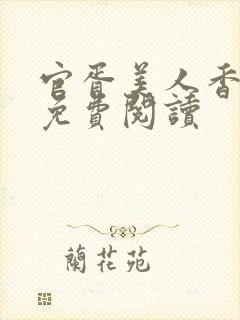 官胥美人香
免費閱讀
蘭花苑